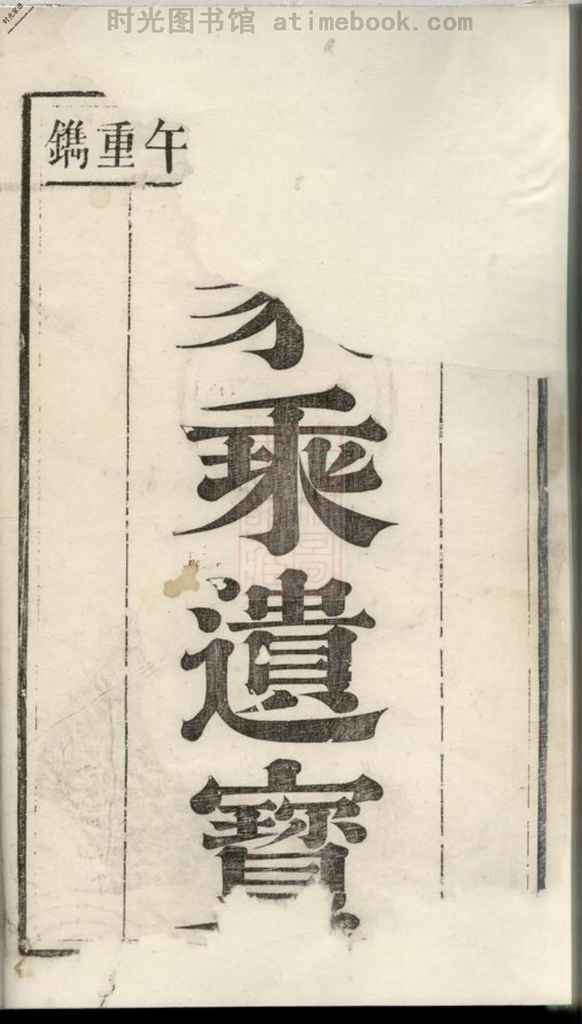 时光图书馆 atimebook.com
午重鐫
乘遺寶